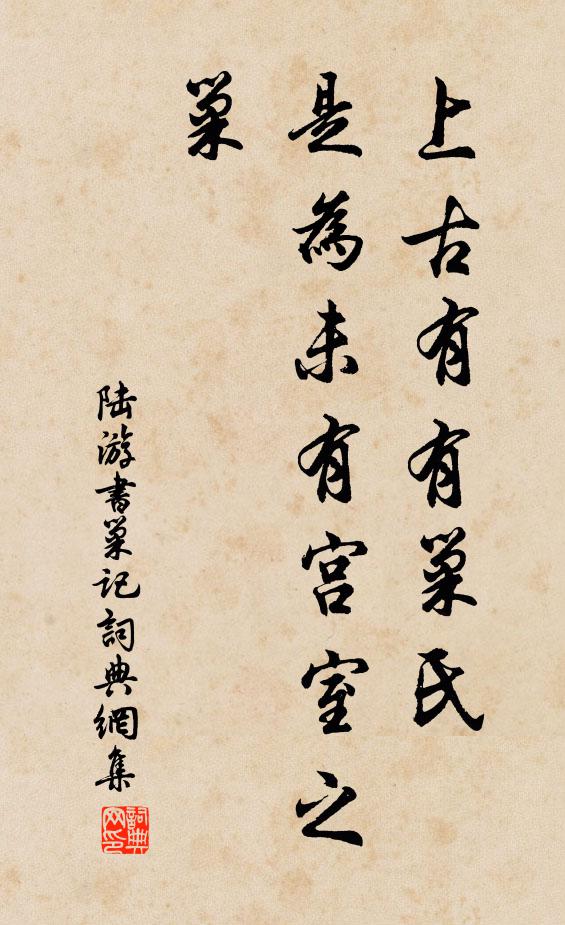 上古有有巢氏
是為未有宮室之
巢
陆游書巢记詞典網集
詞典网印